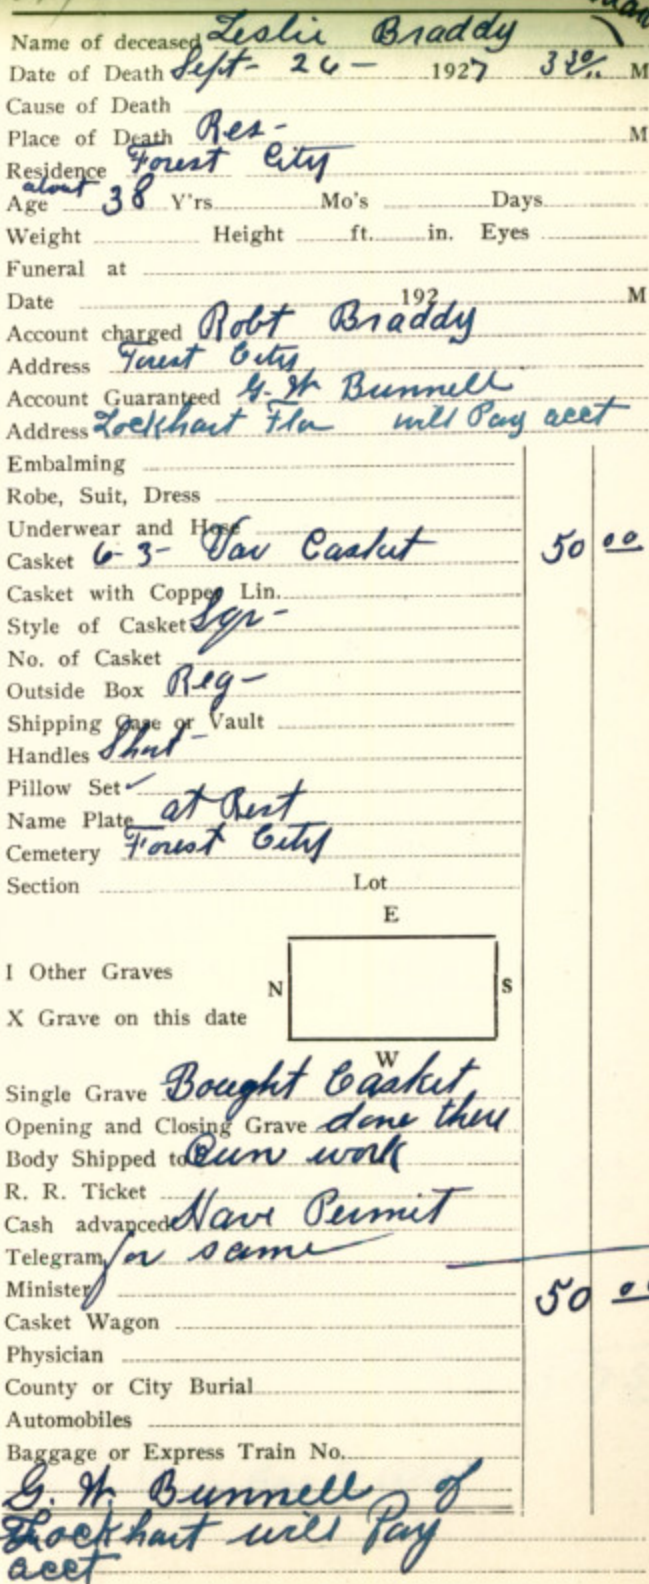 Name of deceased Leslie Braddy
Date of Death Sept- 26- 1927 3 30/.. M
Cause of Death
Place of Death Res- M
Residence Forest City
about
Age 38 Y'rs. Mo's Days
Weight Height ft. in. Eyes
Funeral at
Date 192 M
Account charged Robt Braddy
Address Forest City
Account Guaranteed G. W Bunnell
Address Lockhart Fla will Pay acct
Embalming
Robe, Suit, Dress
Underwear and Hose
Casket 6-3- Var Casket 50 00
Casket with Copper Lin.
Style of Casket Sqr-
No. of Casket
Outside Box Reg-
Shipping Case or Vault
Handles Short-
Pillow Set ✓
Name Plate at Rest
Cemetery Forest City
Section Lot
E
I Other Graves
N S
X Grave on this date
W
Single Grave Bought Casket
Opening and Closing Grave done their
Body Shipped to Own work
R. R. Ticket
Cash advanced Have Permit
Telegram for same
Minister 50 00
Casket Wagon
Physician
County or City Burial
Automobiles
Baggage or Express Train No.
G. W. Bunnell of
Lockhart will Pay
acct